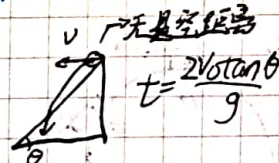 v 无悬空距离
t=2V₀tanθ/g
θ